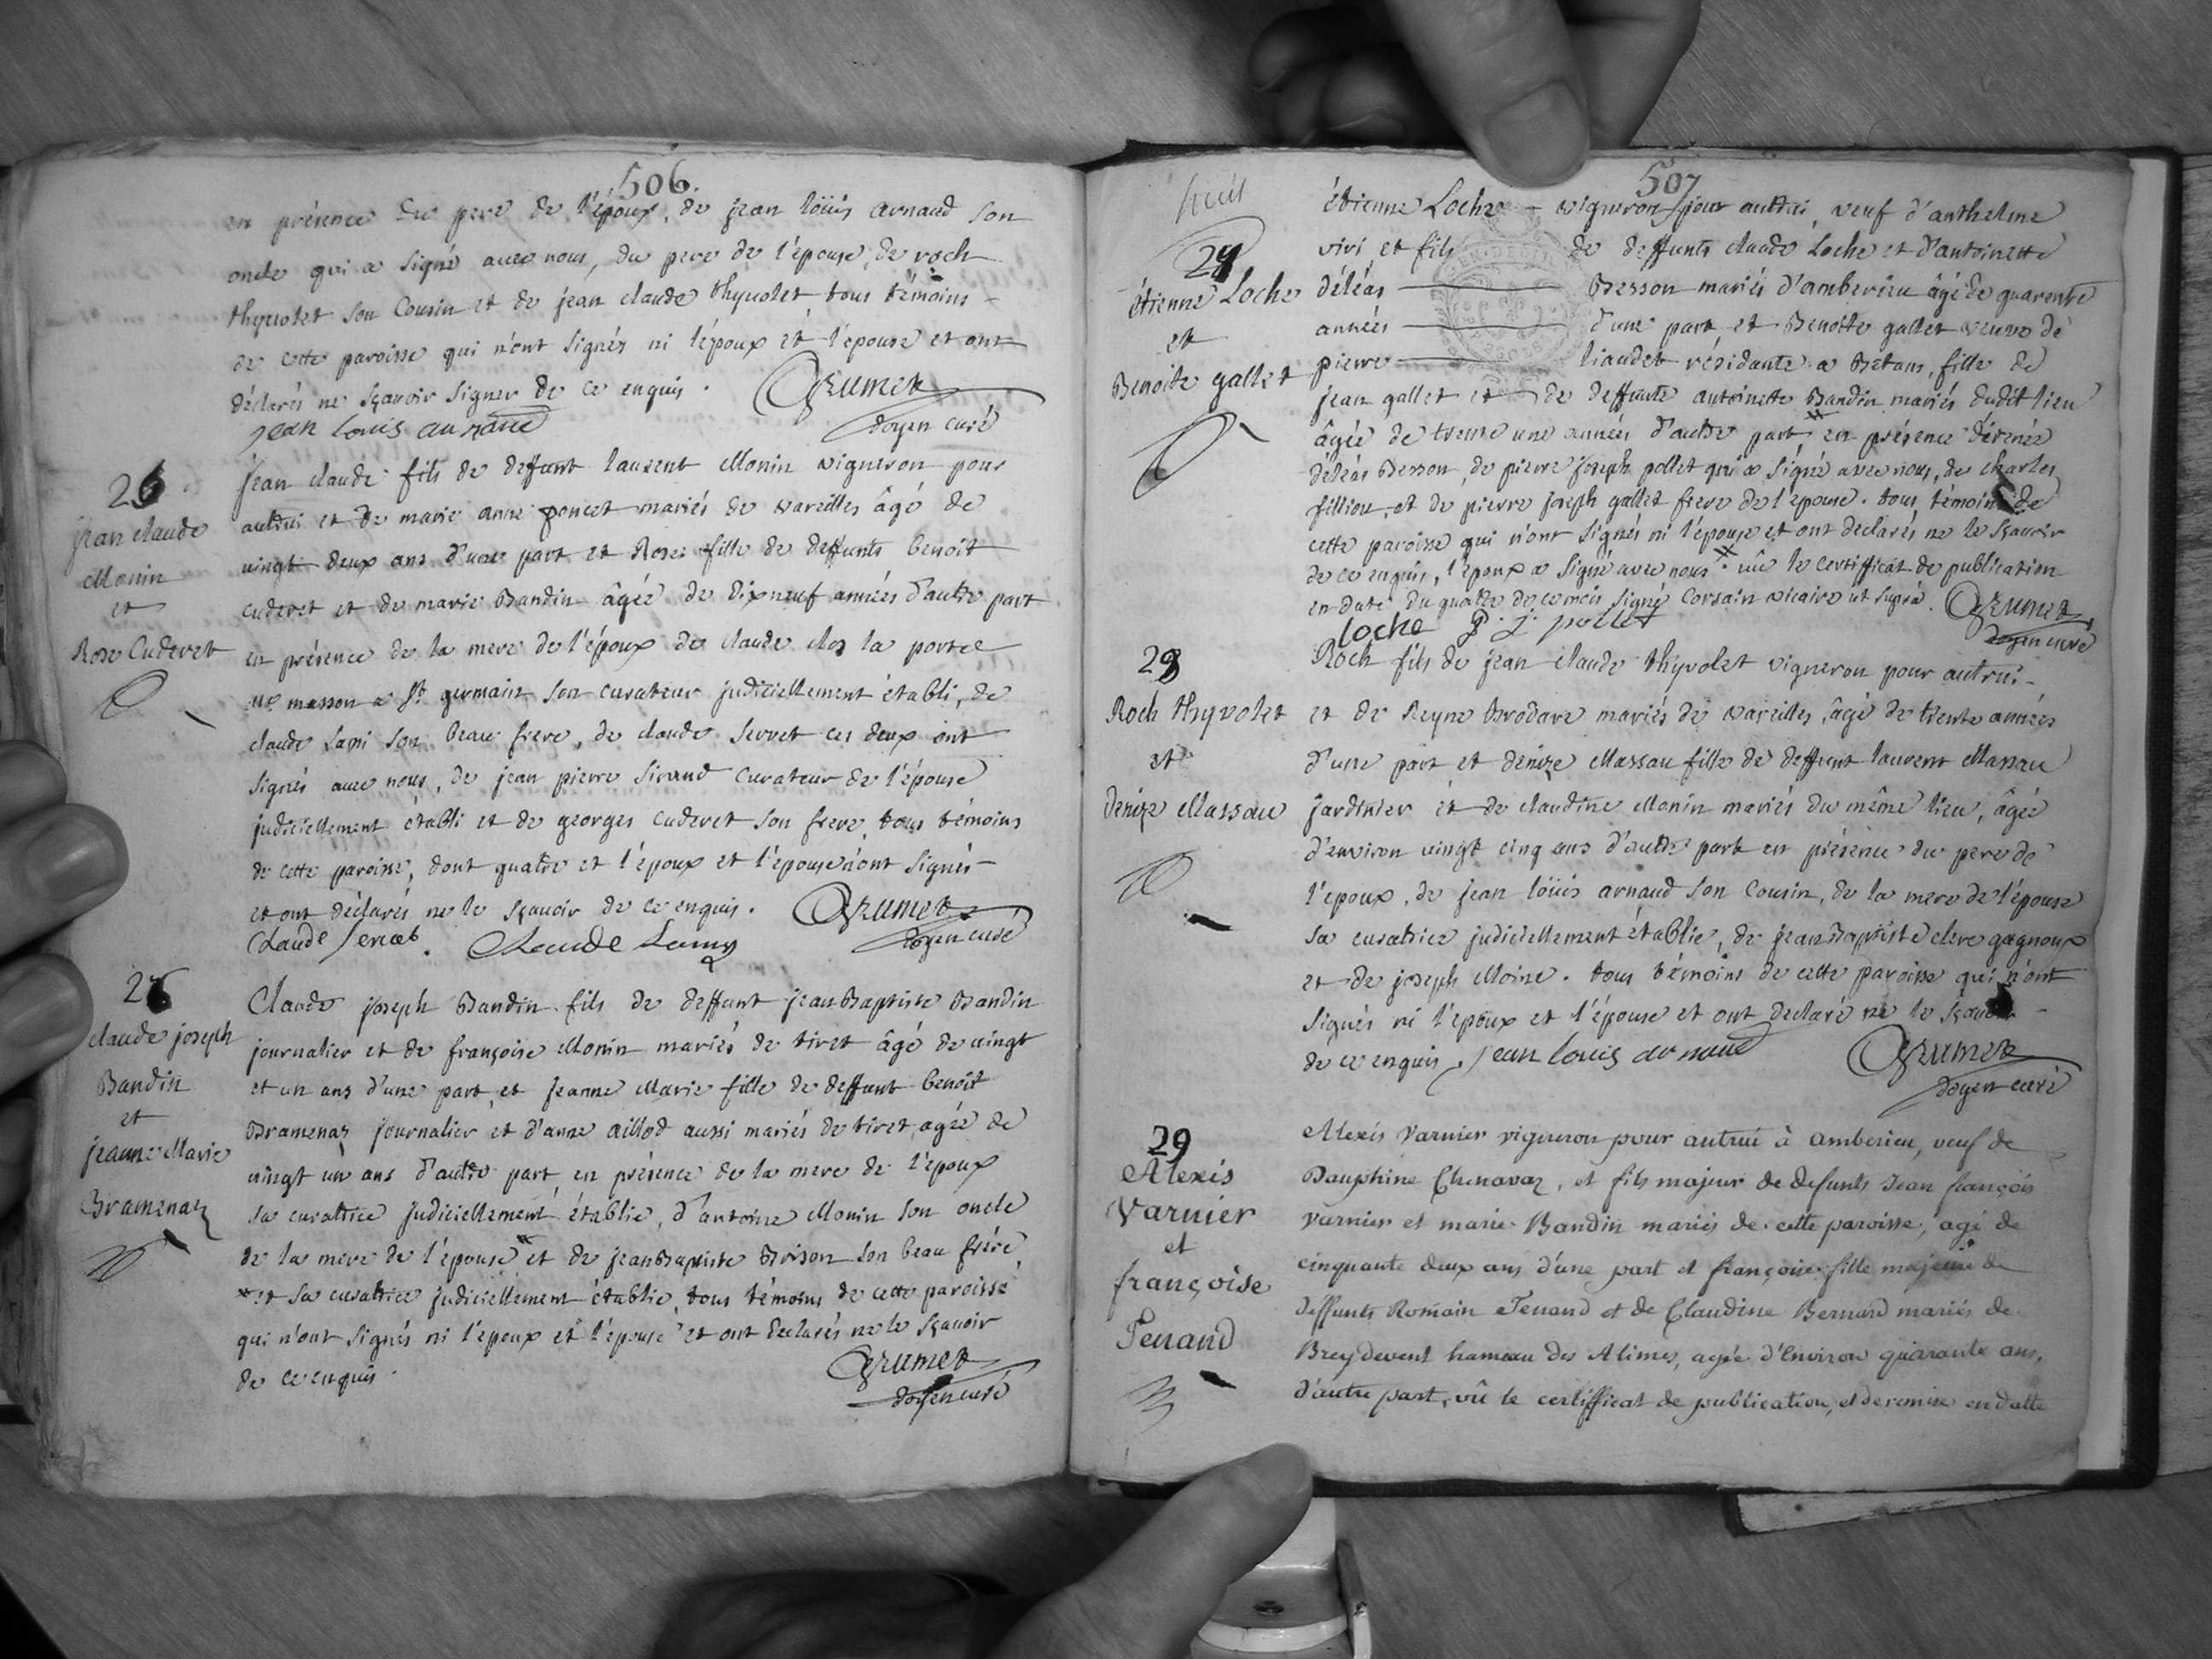 506.
en présence du pere de l'époux, de jean loüis arnaud son
oncle qui a signé avec nous, du pere de l'épouse, de roch
thyvolet son Cousin et de jean claude thyvolet tous témoins
de cette paroisse qui n'ont signés ni l'époux et l'épouse et ont
déclarés ne sçavoir signer de ce enquis.
Grumet
jean louis arnaud
doyen curé
26
jean claude
Monin
et
Rose Cuderet
jean claude fils de deffunt laurent Monin vigneron pour
autrui et de marie anne poncet mariés de vareilles âgé de
vingt deux ans d'une part et Rose fille de deffunts benoit
cuderet et de marie Bandin âgée de dixneuf années d'autre part
en présence de la mere de l'époux de claude clos la portee
me masson a st germain son curateur judiciellement établi, de
claude lami son beau frere, de claude servet ces deux ont
signés avec nous, de jean pierre sirand curateur de l'épouse
judiciellement établi et de georges cuderet son frere, tous témoins
de cette paroisse, dont quatre et l'époux et l'épouse n'ont signés
et ont déclarés ne le sçavoir de ce enquis.
Grumet
Claude Servet. Claude Lamy
doyen curé
claude joseph
Bandin
et
jeanne Marie
Bramenaz
Claude joseph Bandin fils de deffunt jean Baptiste Bandin
journalier et de françoise Monin mariés de tiret âgé de vingt
et un ans d'une part, et jeanne Marie fille de deffunt benoit
Bramenaz journalier et d'anne aillod aussi mariés de tiret, agée de
vingt un ans d'autre part, en présence de la mere de l'époux
sa curatrice judiciellement établie, d'antoine Monin son oncle
de la mere de l'épouse et de jean Baptiste Brison son beau frère
et sa curatrice judiciellement établie, tous témoins de cette paroisse
qui n'ont signés ni l'epoux et l'épouse et ont declarés ne le sçavoir
de ce enquis.
Grumet
doyen curé
507
huit
étienne Loche
et
Benoite gallet
étienne Loche vigneron pour autrui, veuf d'anthelme
vivi et fils de deffunts claude Loche et d'antoinette
déléas Besson mariés d'amberieu âgé de quarente
années d'une part et Benoite gallet veuve de
pierre liaudet résidante a Bétans, fille de
jean gallet et de deffunte antoinette Bandin mariés dudit lieu
âgée de trente une années d'autre part en présence d'érenée
déléas Besson, de pierre joseph pollet qui a signé avec nous, de charles
fillion, et de pierre joseph gallet frere de l'épouse. tous témoins de
cette paroisse qui n'ont signés ni l'épouse et ont declarés ne le sçavoir
de ce enquis, l'époux a signé avec nous. vûe le certifficat de publication
en date du quatre de ce mois signé Corsain vicaire ut supra.
Grumet
loche P. j. pollet
doyen curé
28
Roch thyvolet
et
denize Massau
Roch fils de jean claude thyvolet vigneron pour autrui
et de Reyne Brodare mariés de vareilles, âgé de trente années
d'une part et denize Massau fille de deffunt laurent Massau
jardinier et de claudine Monin mariés du même lieu, âgée
d'environ vingt cinq ans d'autre part en présence du pere de
l'epoux, de jean loüis arnaud son Cousin, de la mere de l'épouse
sa curatrice judiciellement établie, de jean Baptiste clerc gagnoux
et de joseph Moine. tous témoins de cette paroisse qui n'ont
signés ni l'époux et l'épouse et ont declaré ne le sçavoir
de ce enquis. jean louis arnaud
Grumet
doyen curé
29
Alexis
Varnier
et
françoise
Tenand
Alexis Varnier vigneron pour autrui à amberieu, veuf de
Dauphine Chenavaz, et fils majeur de defunts Jean françois
Varnier et marie Bandin mariés de cette paroisse, agé de
cinquante deux ans d'une part et françoise fille majeure de
deffunts Romain Tenand et de Claudine Bernard mariés de
Breydevent hameau des Alimes, agée d'Environ quarante ans,
d'autre part, vû le certifficat de publication, et de remise en datte